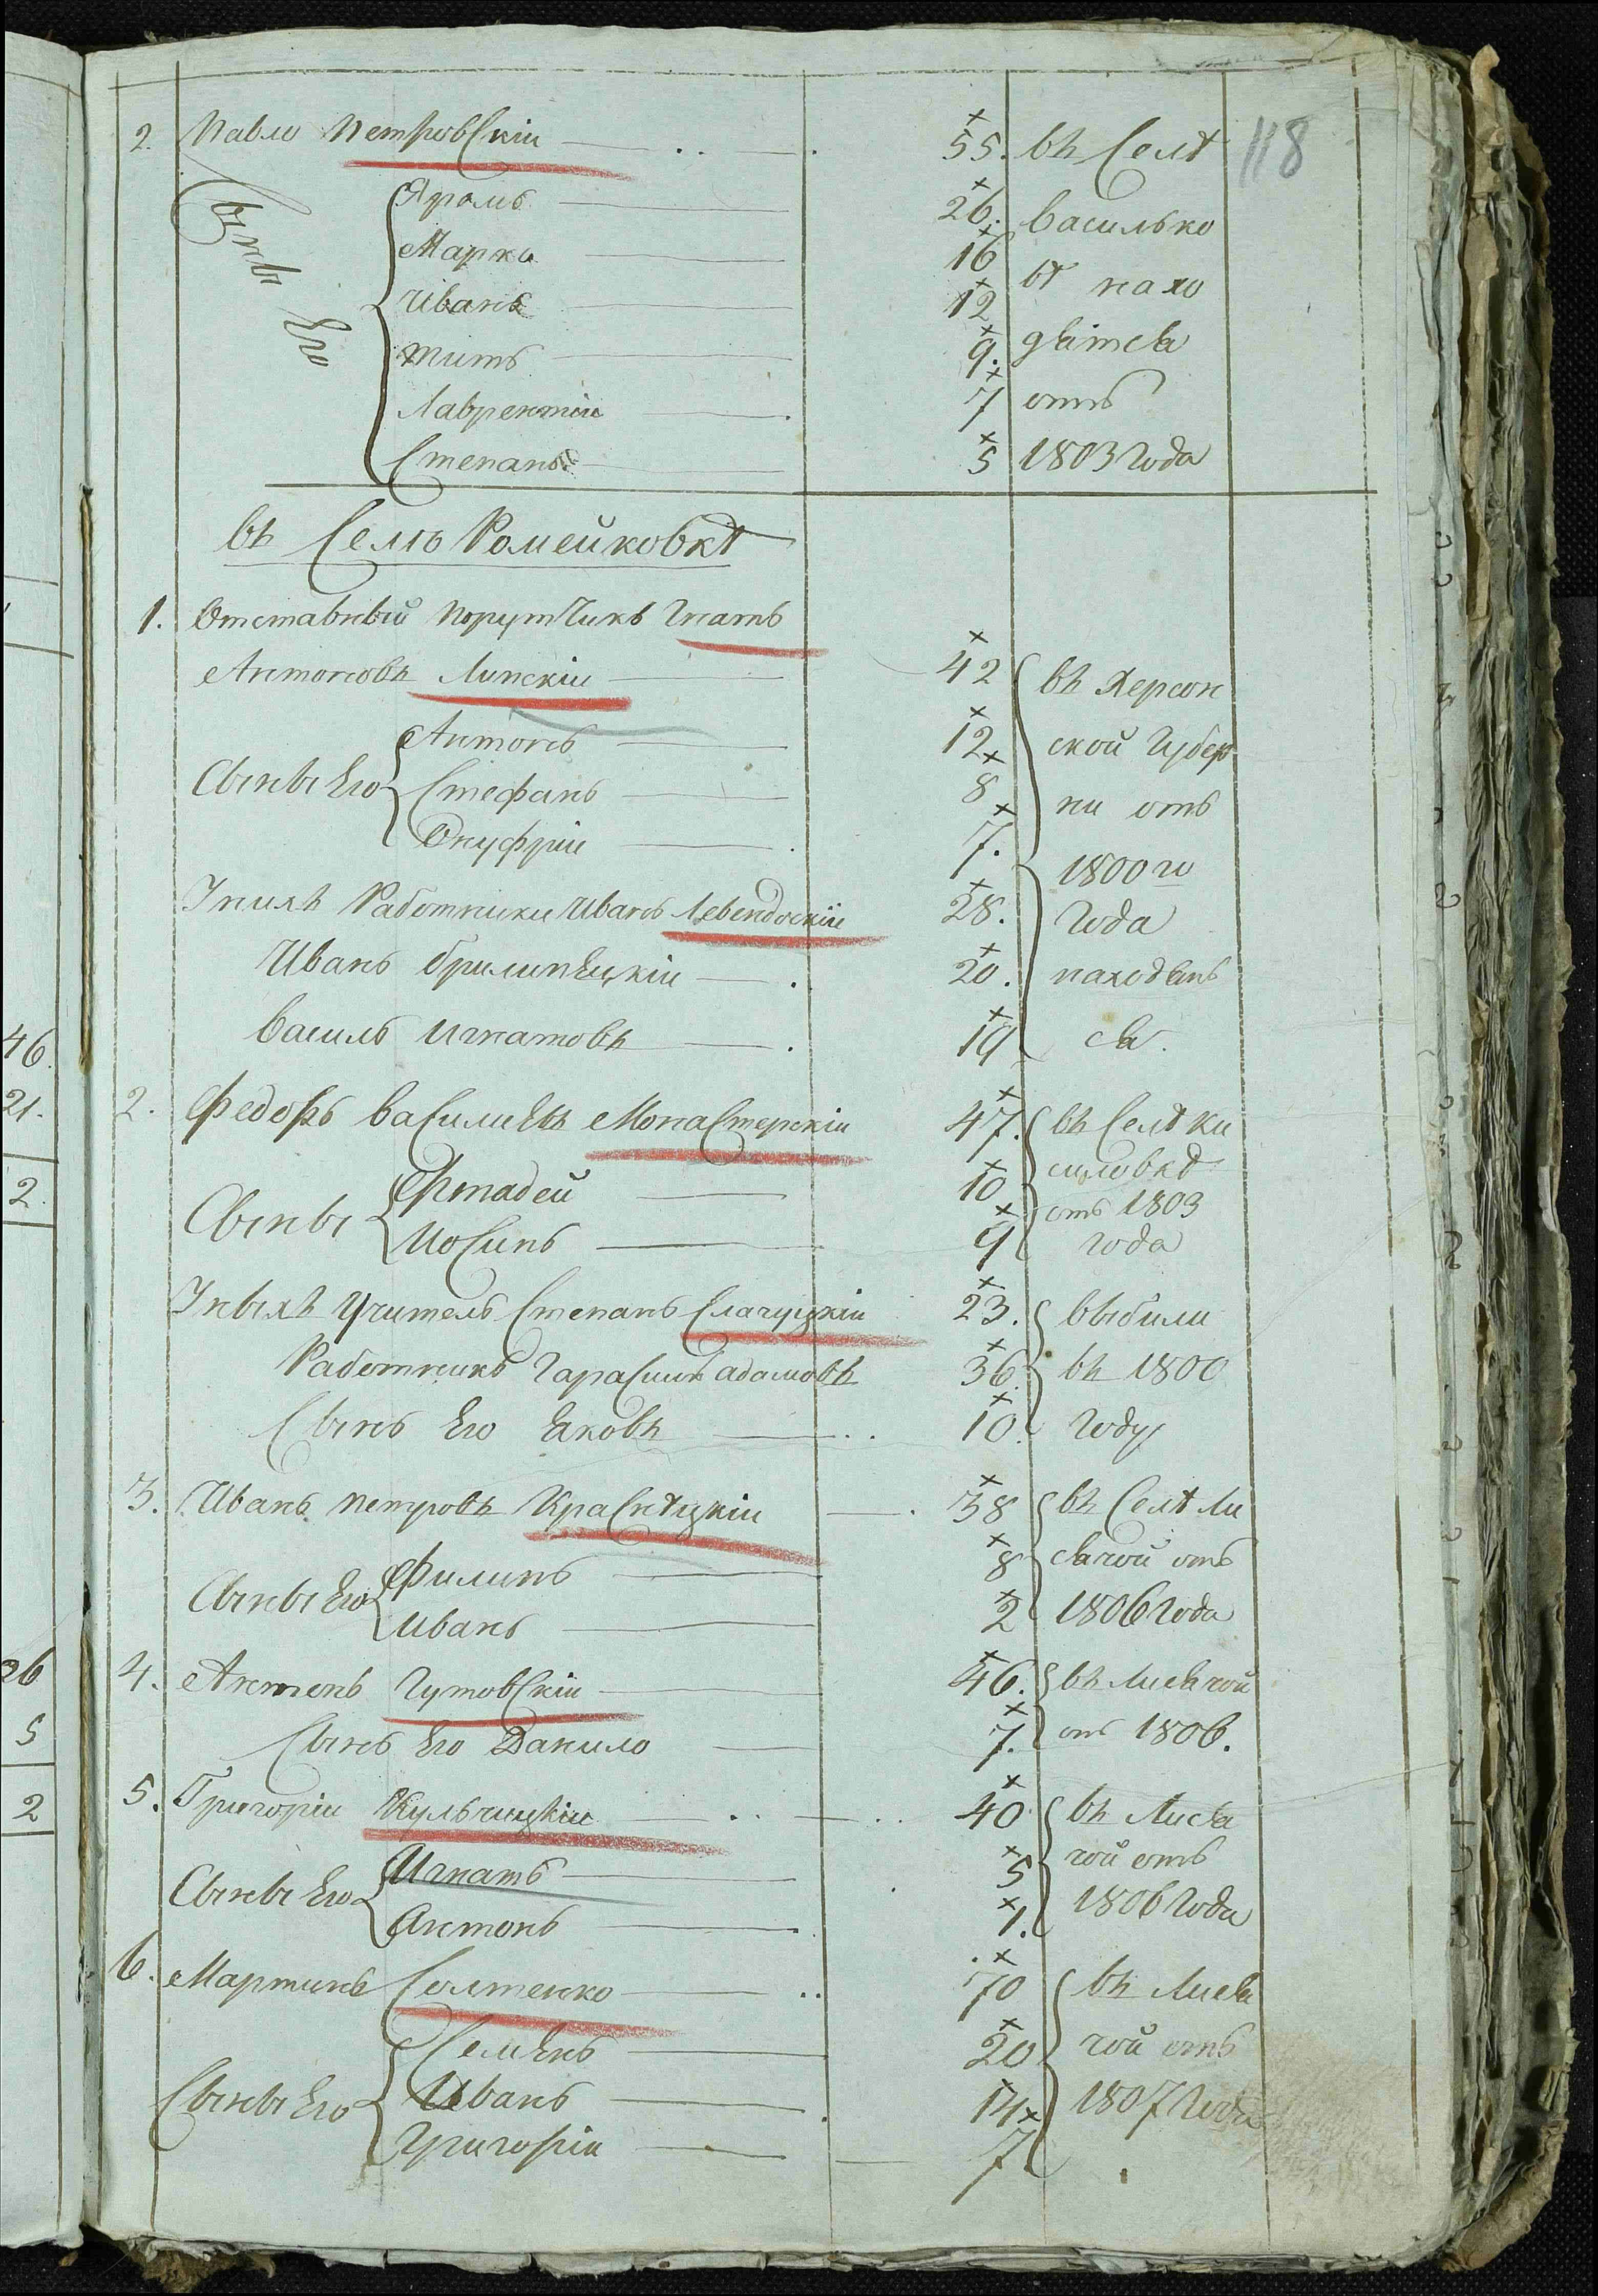 118
2. Павло Петровскіи 55. въ Селѣ
Сыны Его
Яромъ 26. Василько
Марко 16
вѣ нахо
Иванъ 12
Титъ 9. дѣитсѧ
Лаврентіи 7 отъ
Степанъ 5 1803 Года
въ Селѣ Ромейковкѣ
1. Отставный Порутчикъ Игнатъ
Антоновъ Липскіи 42 въ Херсон
Сыны Его
Антонъ 12 ской Губер
Стефанъ 8 ни отъ
Онуфріи 7. 1800 го
У нихъ Работники Иванъ Левендовскіи 28. Года
Иванъ Брилинецкіи 20. находѧтъ
Василь Игнатовъ 19 сѧ.
2. Федоръ Василиевъ Монастерскіи 47. въ Селѣ Ки
силовкѣ
Сыны
Фтадей 10 отъ 1803
Иосипъ 9 года
У ныхъ Учитель Степанъ 23. выбили
Работникъ Гарасимъ адамовъ 36. въ 1800
Сынъ Его Ѧковъ 10. Году
3. Иванъ Петровъ Краснѣцкіи 38 въ Селѣ Ли
Сыны Его
Филипъ 8 сѧчой отъ
Иванъ 2 1806 Года
4. Антонъ Гутовскіи 46. въ Лисѧчой
Сынъ Его Данило 7. отъ 1806.
5. Григоріи Кульчицкіи 40 въ Лисѧ
Сыны Его
Игнатъ 5 чой отъ
Антонъ 1. 1806 Года
6. Мартинъ Солтенко 70 въ Лисѧ
Сыны Его
Семенъ 20 чой отъ
Иванъ 14 1807 Года
Григоріи 7.
46.
21.
2.
26
5
2